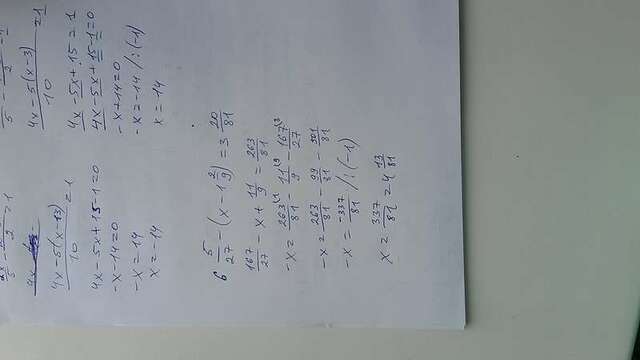 4x - 5(x-13)/10 = 1
4x - 5x + 15 - 1 = 0
-x - 14 = 0
-x = 14
x = -14
4x - 5(x-3)/10 = 1
4x - 5x + 15 = 1
4x - 5x + 15 - 1 = 0
-x + 14 = 0
-x = -14 /:(-1)
x = 14
6 5/27 - (x - 1 2/9) = 3 20/81
167/27 - x + 11/9 = 263/81
-x = 263/81 (1 - 11/9 (9 - 167/27 (3
-x = 263/81 - 99/81 - 501/81
-x = -337/81 /:(-1)
x = 337/81 = 4 13/81